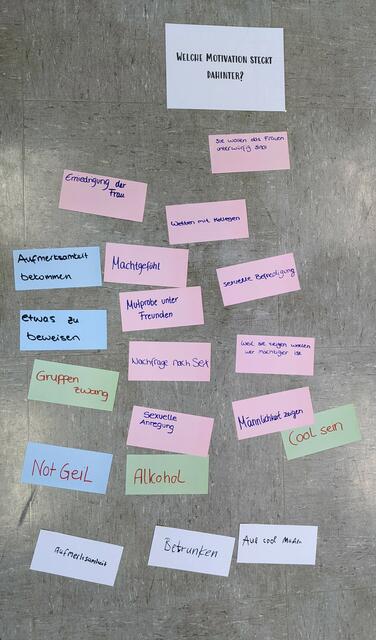 WELCHE MOTIVATION STECKT
DAHINTER?
Sie wollen das Frauen
unterwürfig sind
Erniedrigung der
Frau
Wetten mit Kollegen
Aufmerksamkeit
bekommen
Machtgefühl
Sexuelle Befriedigung
Mutprobe unter
Freunden
etwas zu
beweisen
Nachfrage nach Sex
Weil sie zeigen wollen
wer mächtiger ist
Gruppen
zwang
Sexuelle
Anregung
Männlichkeit zeigen
Cool sein
Not GeiL
AlkohoL
Aufmerksamkeit
Betrunken
Auf cool